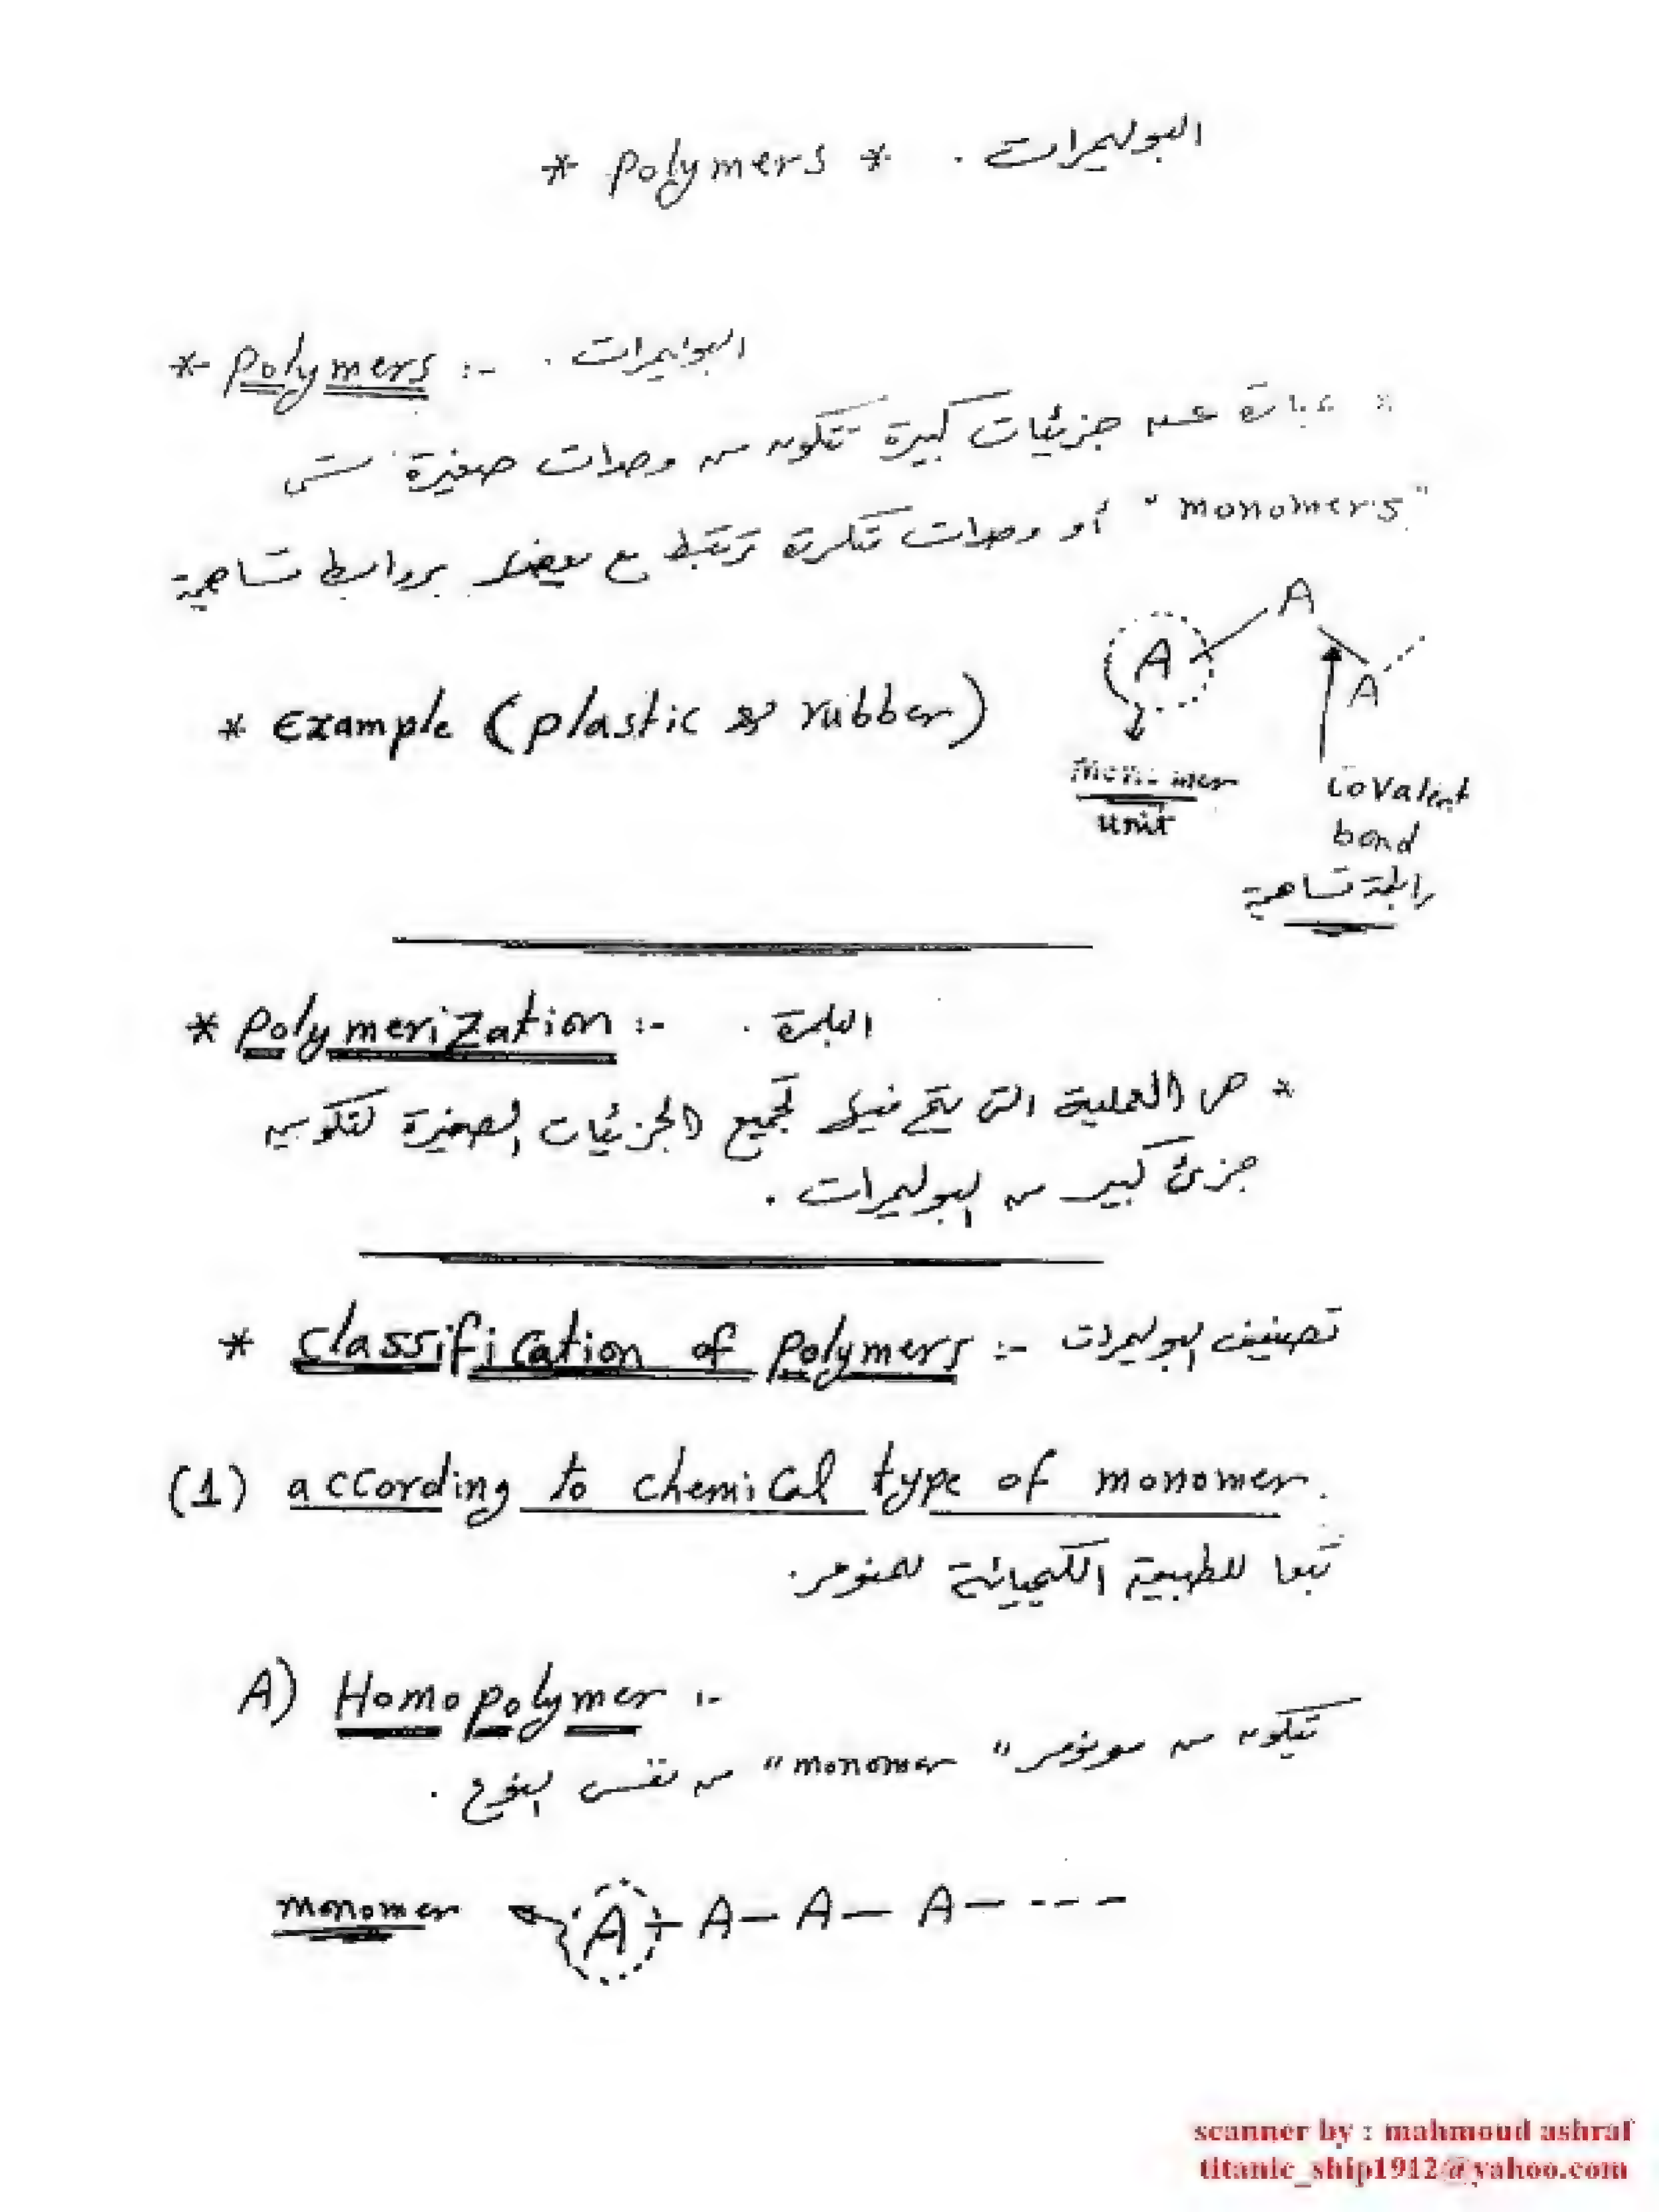 * Polymers * البوليمرات .
* Polymers :- البوليمرات .
* عبارة عن جزيئات كبيرة تتكون من وحدات صغيرة تسمى
"monomers" أو وحدات متكررة ترتبط مع بعضها بروابط تساهمية
A
A
A
* Example (plastic & rubber)
monomer
unit
covalent
bond
رابطة تساهمية
* Polymerization :- البلمرة .
* هى العملية التى يتم فيها تجميع الجزيئات الصغيرة لتكوين
جزئ كبير من البوليمرات .
* Classification of Polymers :- تصنيف البوليمرات
(1) according to chemical type of monomer.
تبعا للطبيعة الكيميائية للمنومر.
A) Homopolymer :-
تتكون من مونومر "monomer" من نفس النوع .
monomer A - A - A - A - ---
scanner by : mahmoud ashraf
titanic_ship1912@yahoo.com